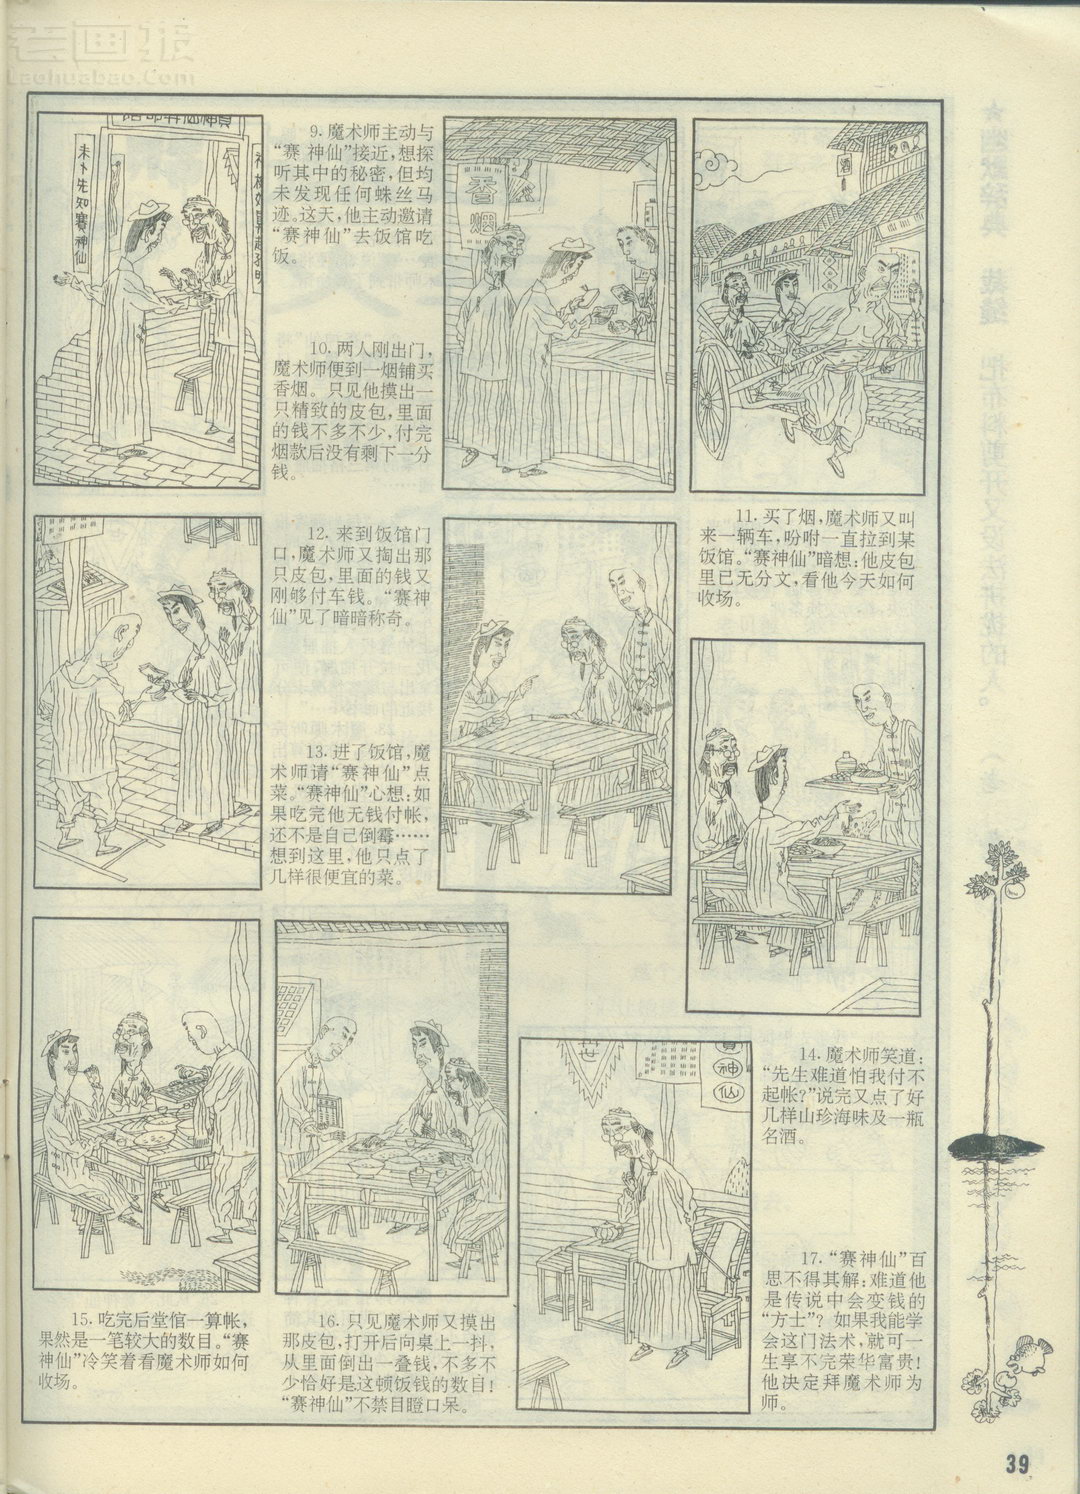 老画报
laohuabao.Com
未卜先知赛神仙
9.魔术师主动与
“赛 神仙”接近,想探
听其中的秘密,但均
未发现任何蛛丝马
迹。这天,他主动邀请
“赛神仙”去饭馆吃
饭。
10.两人刚出门,
魔术师便到一烟铺买
香烟。只见他摸出一
只精致的皮包,里面
的钱不多不少,付完
烟款后没有剩下一分
钱。
香烟
酒
11.买了烟,魔术师又叫
来一辆车,吩咐一直拉到某
饭馆。“赛神仙”暗想:他皮包
里已无分文,看他今天如何
收场。
12.来到饭馆门
口,魔术师又掏出那
只皮包,里面的钱又
刚够付车钱。“赛神
仙”见了暗暗称奇。
13.进了饭馆,魔
术师请“赛神仙”点
菜。“赛神仙”心想:如
果吃完他无钱付帐,
还不是自己倒霉……
想到这里,他只点了
几样很便宜的菜。
14.魔术师笑道:
“先生难道怕我付不
起帐?”说完又点了好
几样山珍海味及一瓶
名酒。
15.吃完后堂倌一算帐,
果然是一笔较大的数目。“赛
神仙”冷笑着看魔术师如何
收场。
16.只见魔术师又摸出
那皮包,打开后向桌上一抖,
从里面倒出一叠钱,不多不
少恰好是这顿饭钱的数目!
“赛神仙”不禁目瞪口呆。
神仙
17.“赛神仙”百
思不得其解:难道他
是传说中会变钱的
“方士”?如果我能学
会这门法术,就可一
生享不完荣华富贵!
他决定拜魔术师为
师。
39